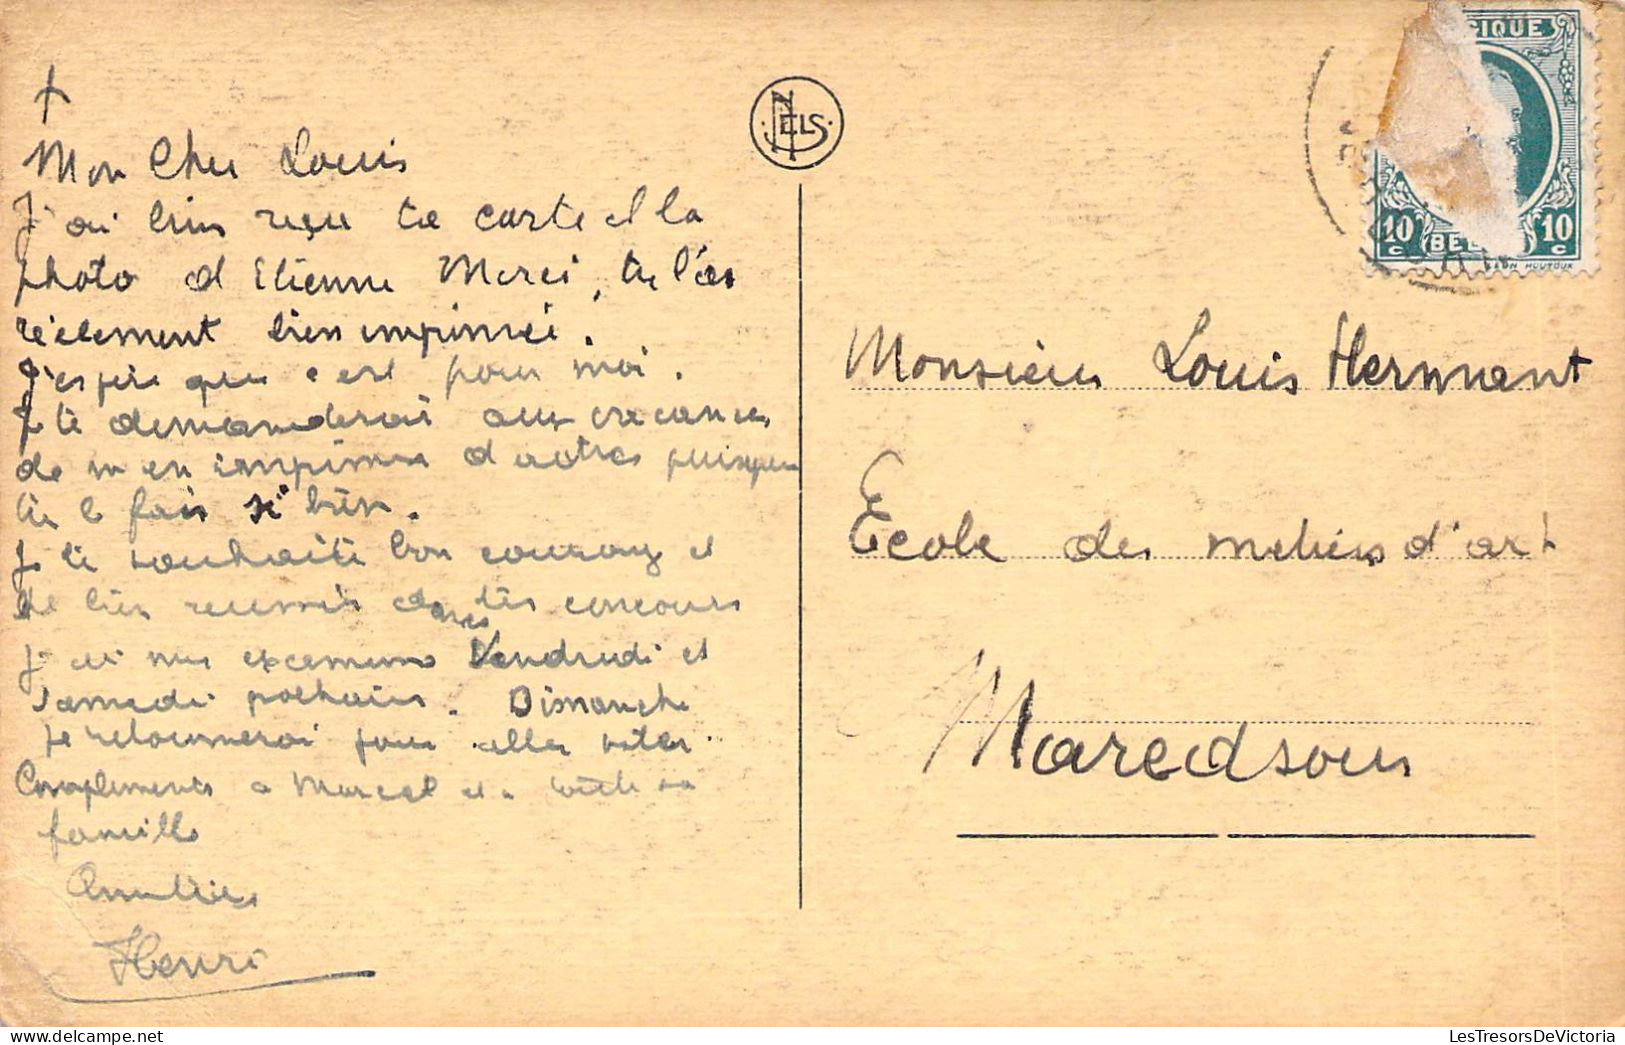 Mon Cher Louis
J'ai bien reçu ta carte et la
photo d'Etienne Merci, tu l'as
réelement bien imprimée.
J'espère que c'est pour moi.
Je te demanderai aux vacances
de m'en imprimer d'autres puisque
tu le fais si bien.
Je te souhaite bon courage et
de bien réussir dans tes concours
J'ai mes examens Vendredi et
Samedi prochains. Dimanche
je retournerai pour aller voter.
Compliments à Marcel et à toute sa
famille
Amitiés
Henri
NELS
GIQUE
10 c
BEL
10 c
Monsieur Louis Hermant
Ecole des métiers d'art
Maredsous
LesTresorsDeVictoria.com